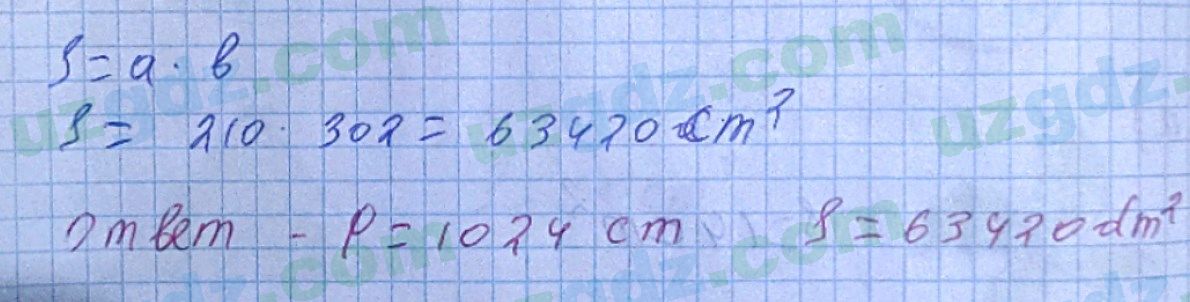 S = a · b
S = 210 · 302 = 63420 cm²
Ответ - P = 1024 cm S = 63420 dm²